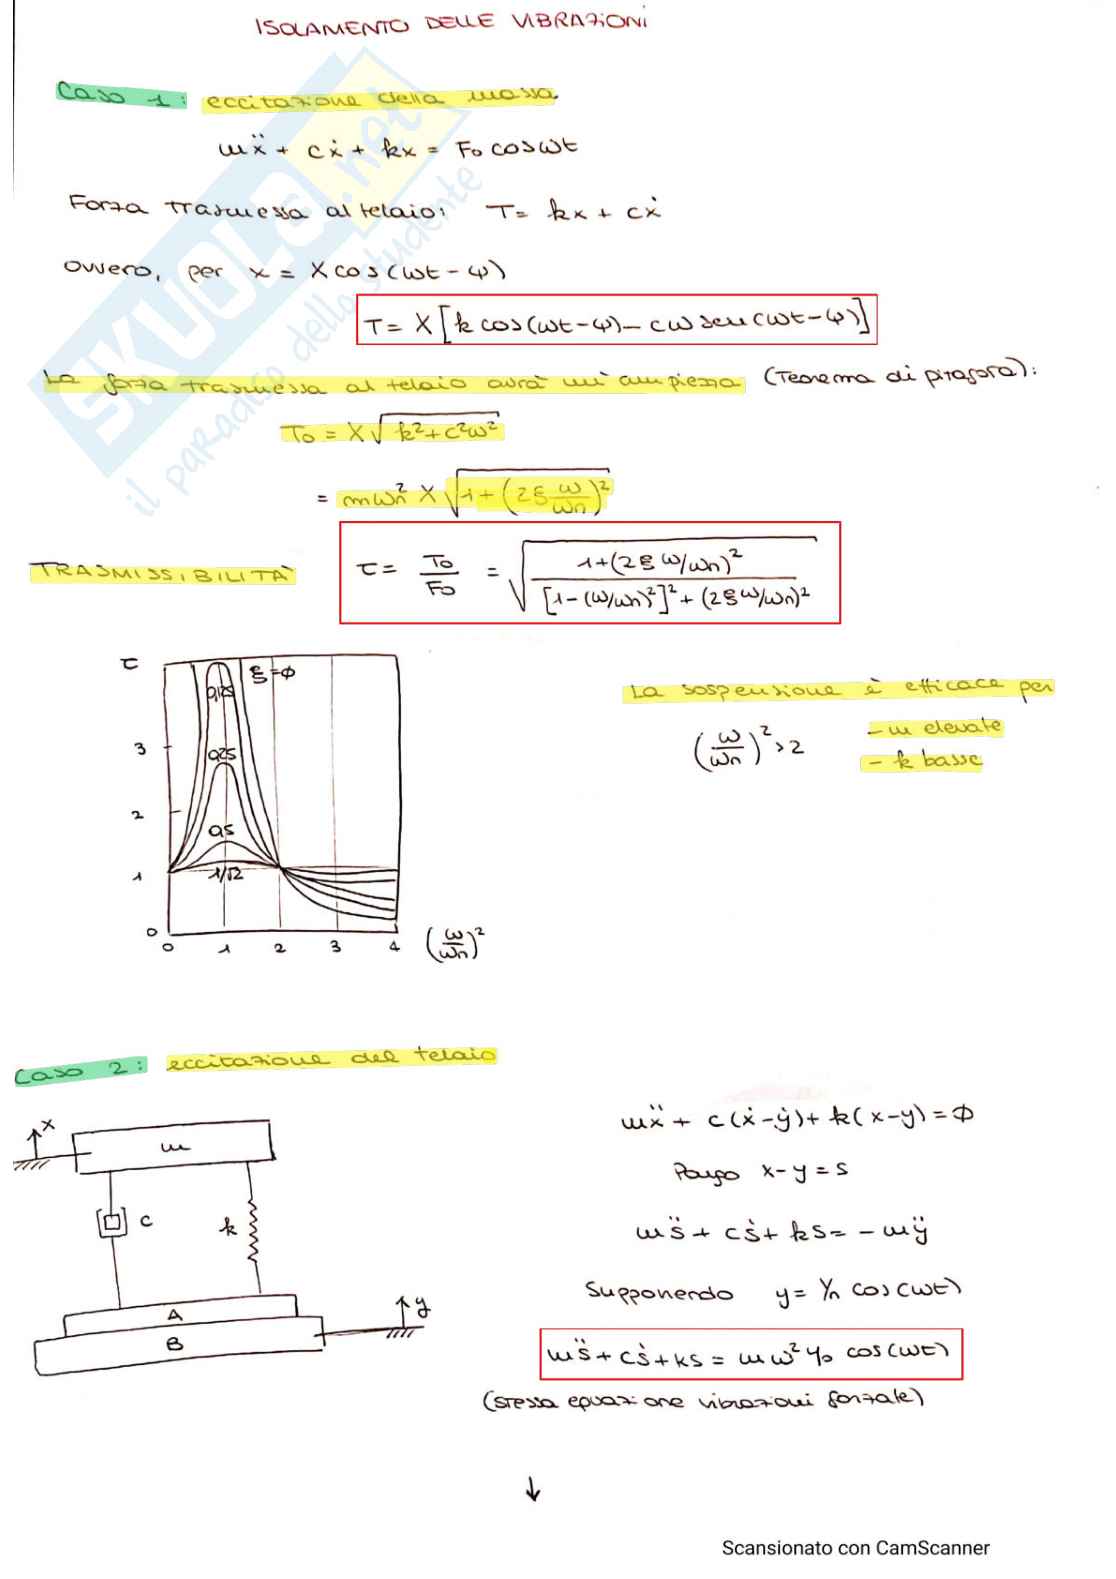 ISOLAMENTO DELLE VIBRAZIONI
Caso 1: eccitazione della massa
mẍ + cẋ + kx = F₀ cosωt
Forza trasmessa al telaio: T = kx + cẋ
ovvero, per x = X cos(ωt - φ)
T = X [k cos(ωt-φ) - cω sen(ωt-φ)]
La forza trasmessa al telaio avrà un'ampiezza (Teorema di pitagora):
T₀ = X √(k² + c²ω²)
= mωn² X √(1 + (2ξ ω/ωn)²)
TRASMISSIBILITÀ τ = T₀/F₀ = √((1+(2ξ ω/ωn)²) / ([1-(ω/ωn)²]² + (2ξ ω/ωn)²))
τ ξ=ϕ
0,125
3 0,25
2 0,5
1 1/√2
0
0 1 2 3 4 (ω/ωn)²
La sospensione è efficace per
(ω/ωn)² > 2
- m elevate
- k basse
Caso 2: eccitazione del telaio
x
m
c k
A
B
y
mẍ + c(ẋ-ẏ) + k(x-y) = ϕ
Pongo x-y = s
ms̈ + cṡ + ks = -mÿ
Supponendo y = Y₀ cos(ωt)
ms̈ + cṡ + ks = mω² Y₀ cos(ωt)
(stessa equazione vibrazioni forzate)
↓
Scansionato con CamScanner
SKUOLA.net
il paradiso dello studente